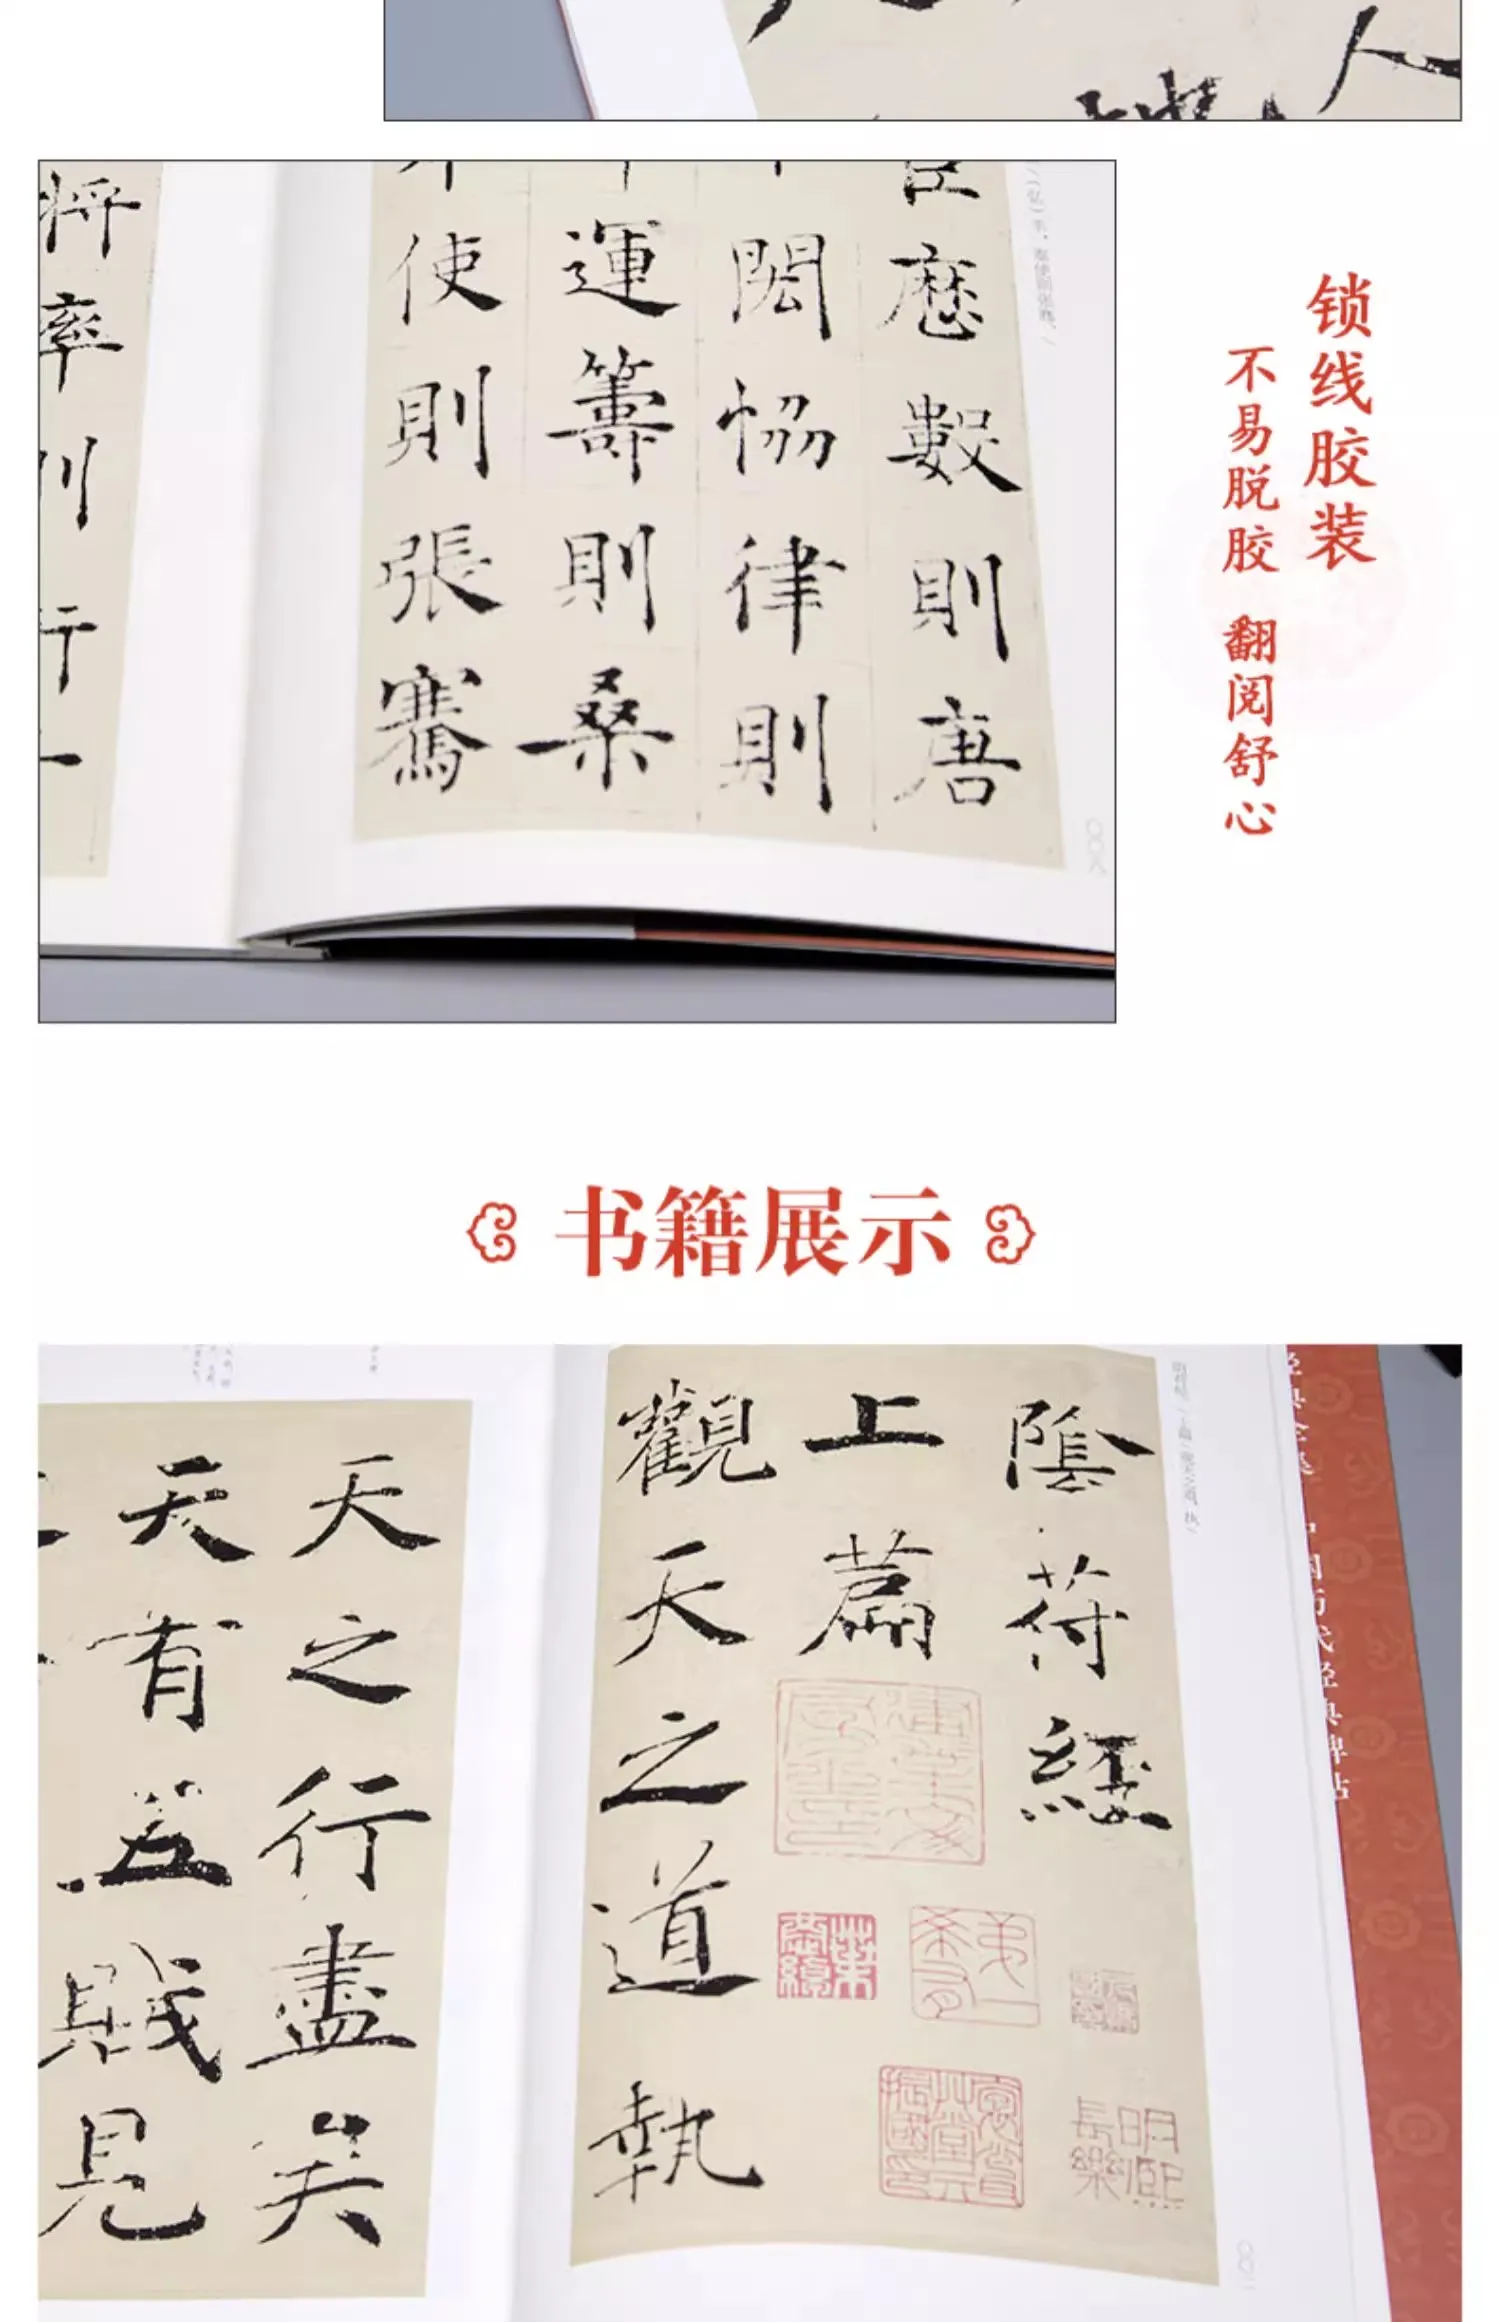 人
将
率
行
臣歷數則唐
閎協律則
運籌則桑
使則張騫
锁线胶装
不易脱胶 翻阅舒心
书籍展示
陰符經
上篇
觀天之道執
天之行盡矣
天有五賊見
明熙
長樂
中国历代经典碑帖